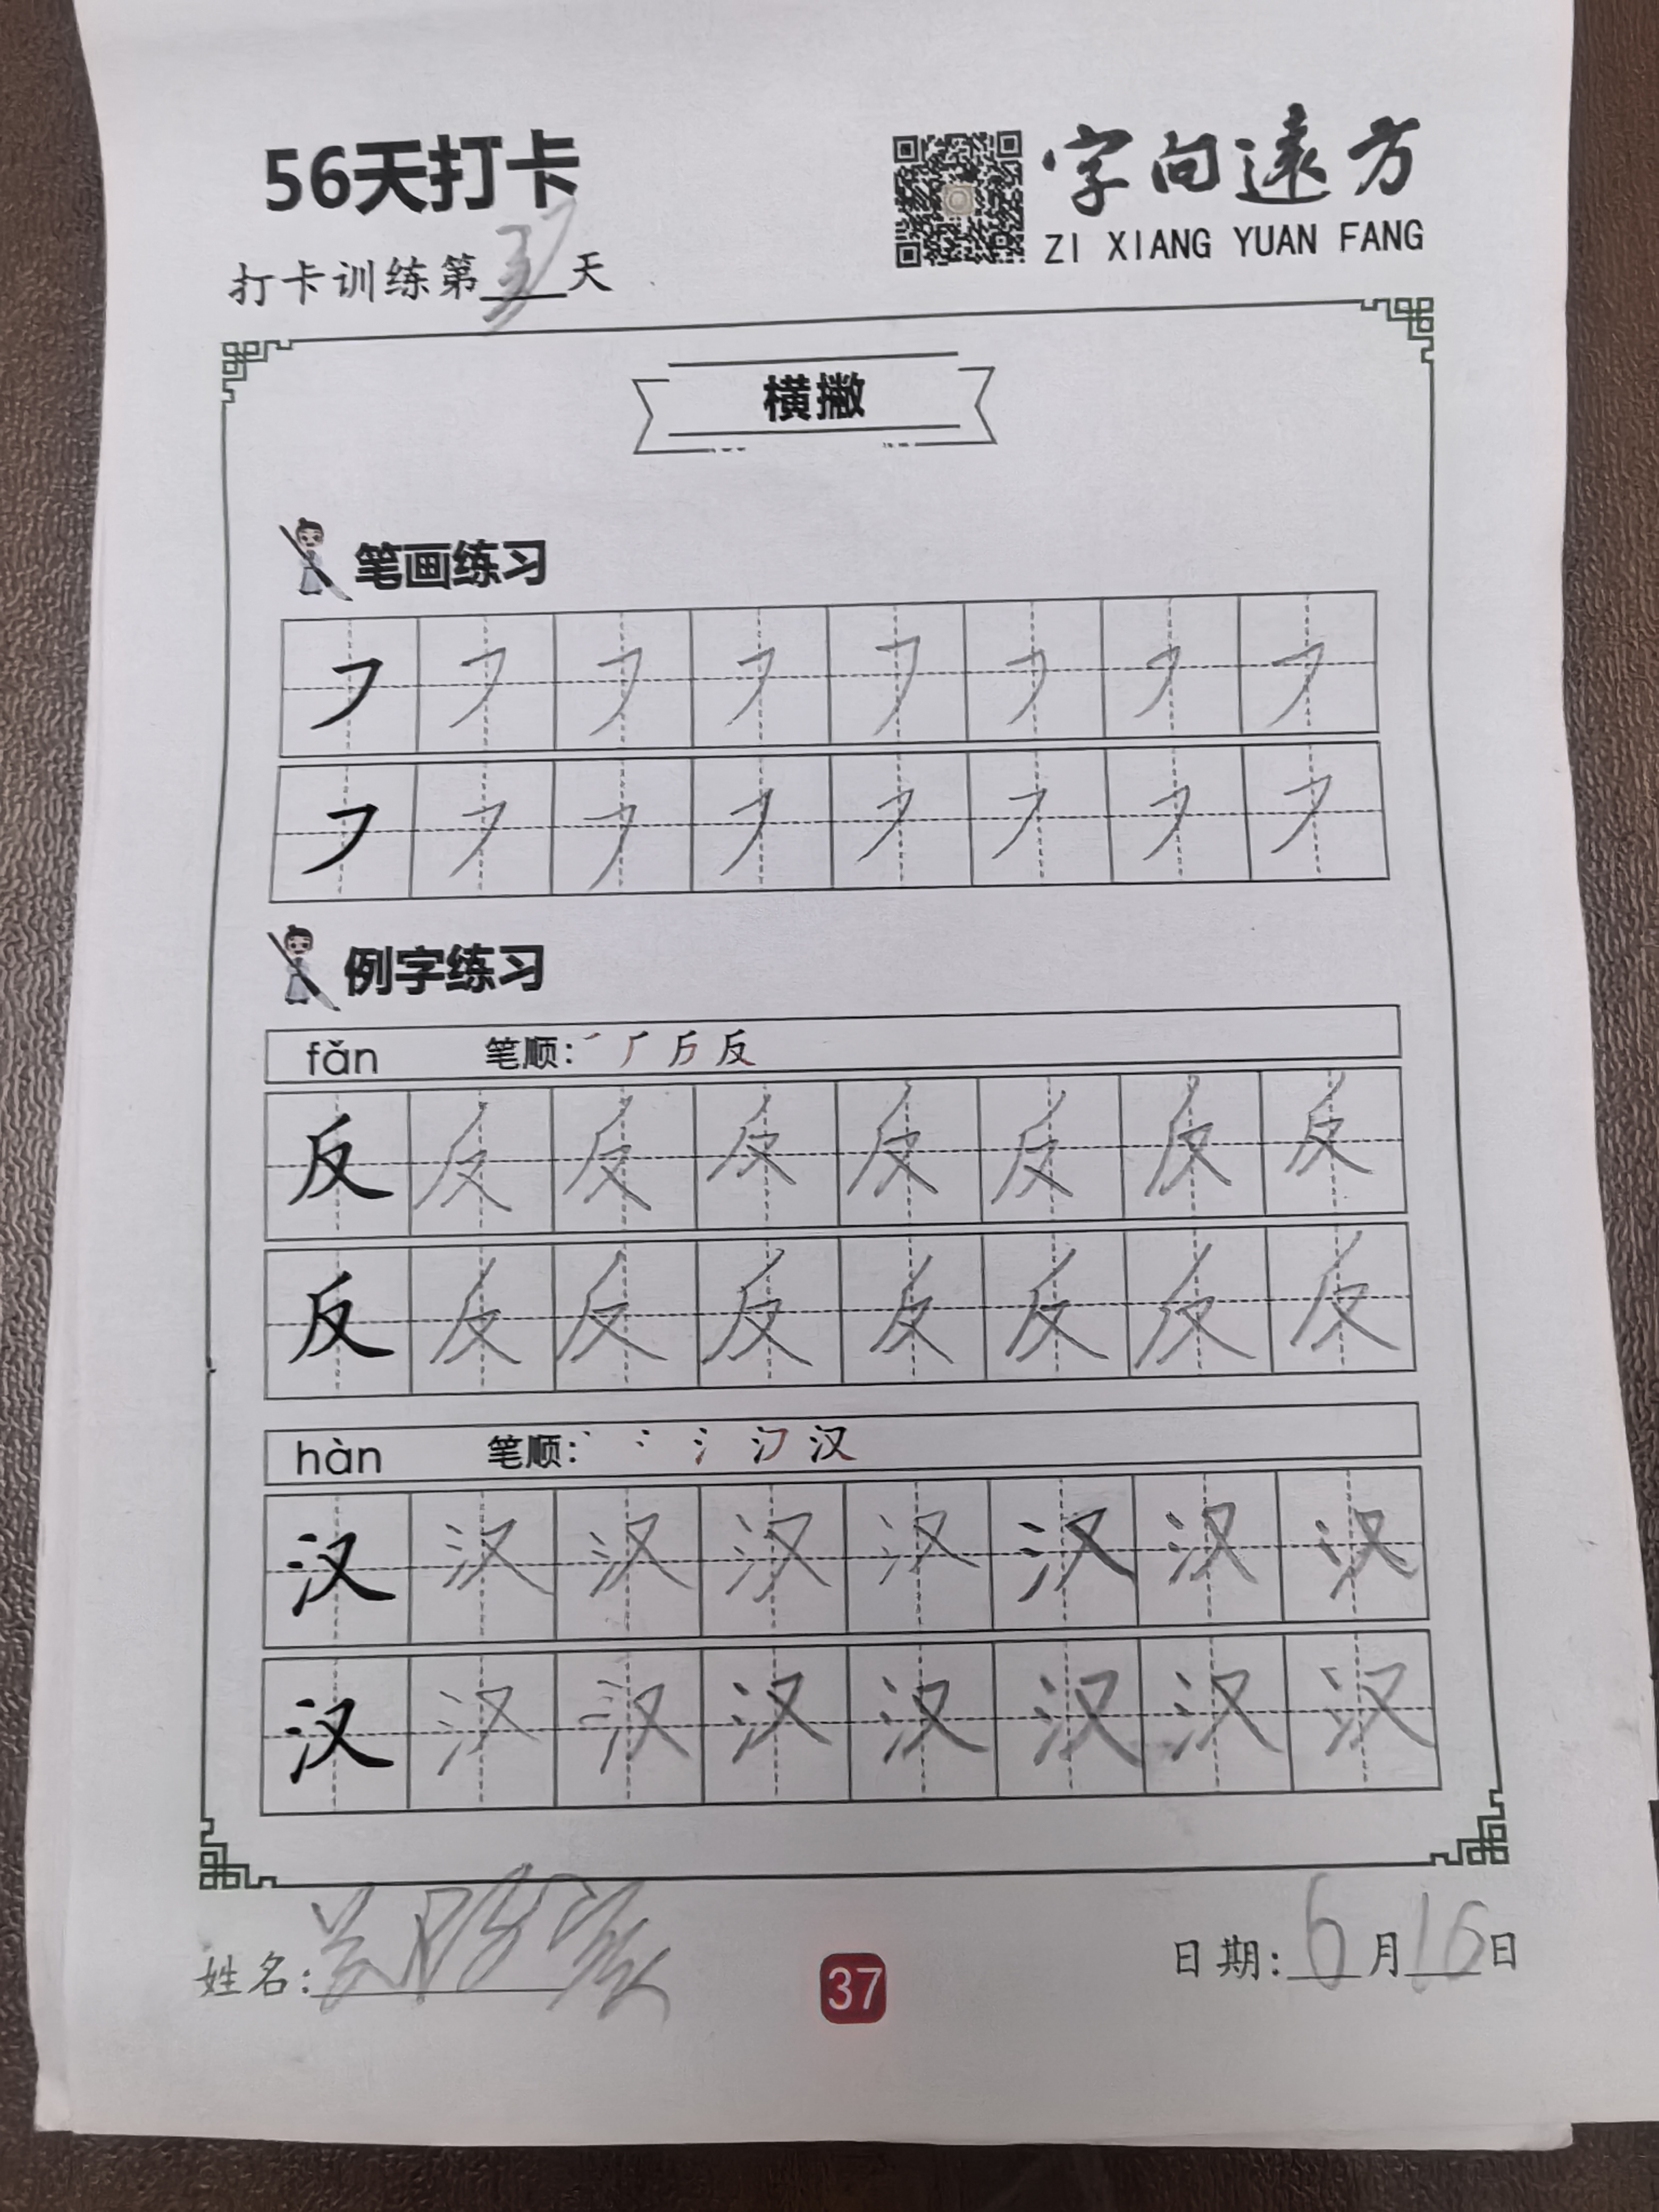 56天打卡
字向遠方
ZI XIANG YUAN FANG
打卡训练第37天
横撇
笔画练习
㇇ ㇇ ㇇ ㇇ ㇇ ㇇ ㇇ ㇇
㇇ ㇇ ㇇ ㇇ ㇇ ㇇ ㇇ ㇇
例字练习
fǎn 笔顺: 反
反 反 反 反 反 反 反 反
反 反 反 反 反 反 反 反
hàn 笔顺: 汉
汉 汉 汉 汉 汉 汉 汉 汉
汉 汉 汉 汉 汉 汉 汉 汉
姓名:
37
日期: 6月16日